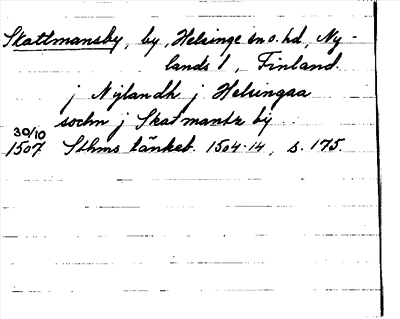 Skattmansby, by, Helsinge sn o. hd, Ny-
lands l, Finland.
j Nylandh j Helsingaa
sochn j Skatmantz by
30/10
1507 Sthms tänkeb. 1504-14, s. 175.